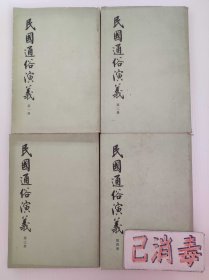 民國通俗演義
第一册
民國通俗演義
第二册
民國通俗演義
第三册
民國通俗演義
第四册
已消毒